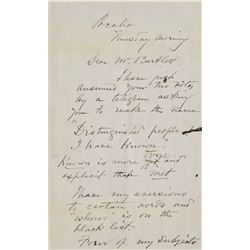 Pocaho
Thursday Morning
Dear Mr. Bartlett
I have just
answered your two notes
by a telegram asking
you to make the name
"Distinguished people
I have Known".
Known is more
explicit than Met
I have my aversions
to certain words and
"whom" is on the
black list.
Four of my subjects